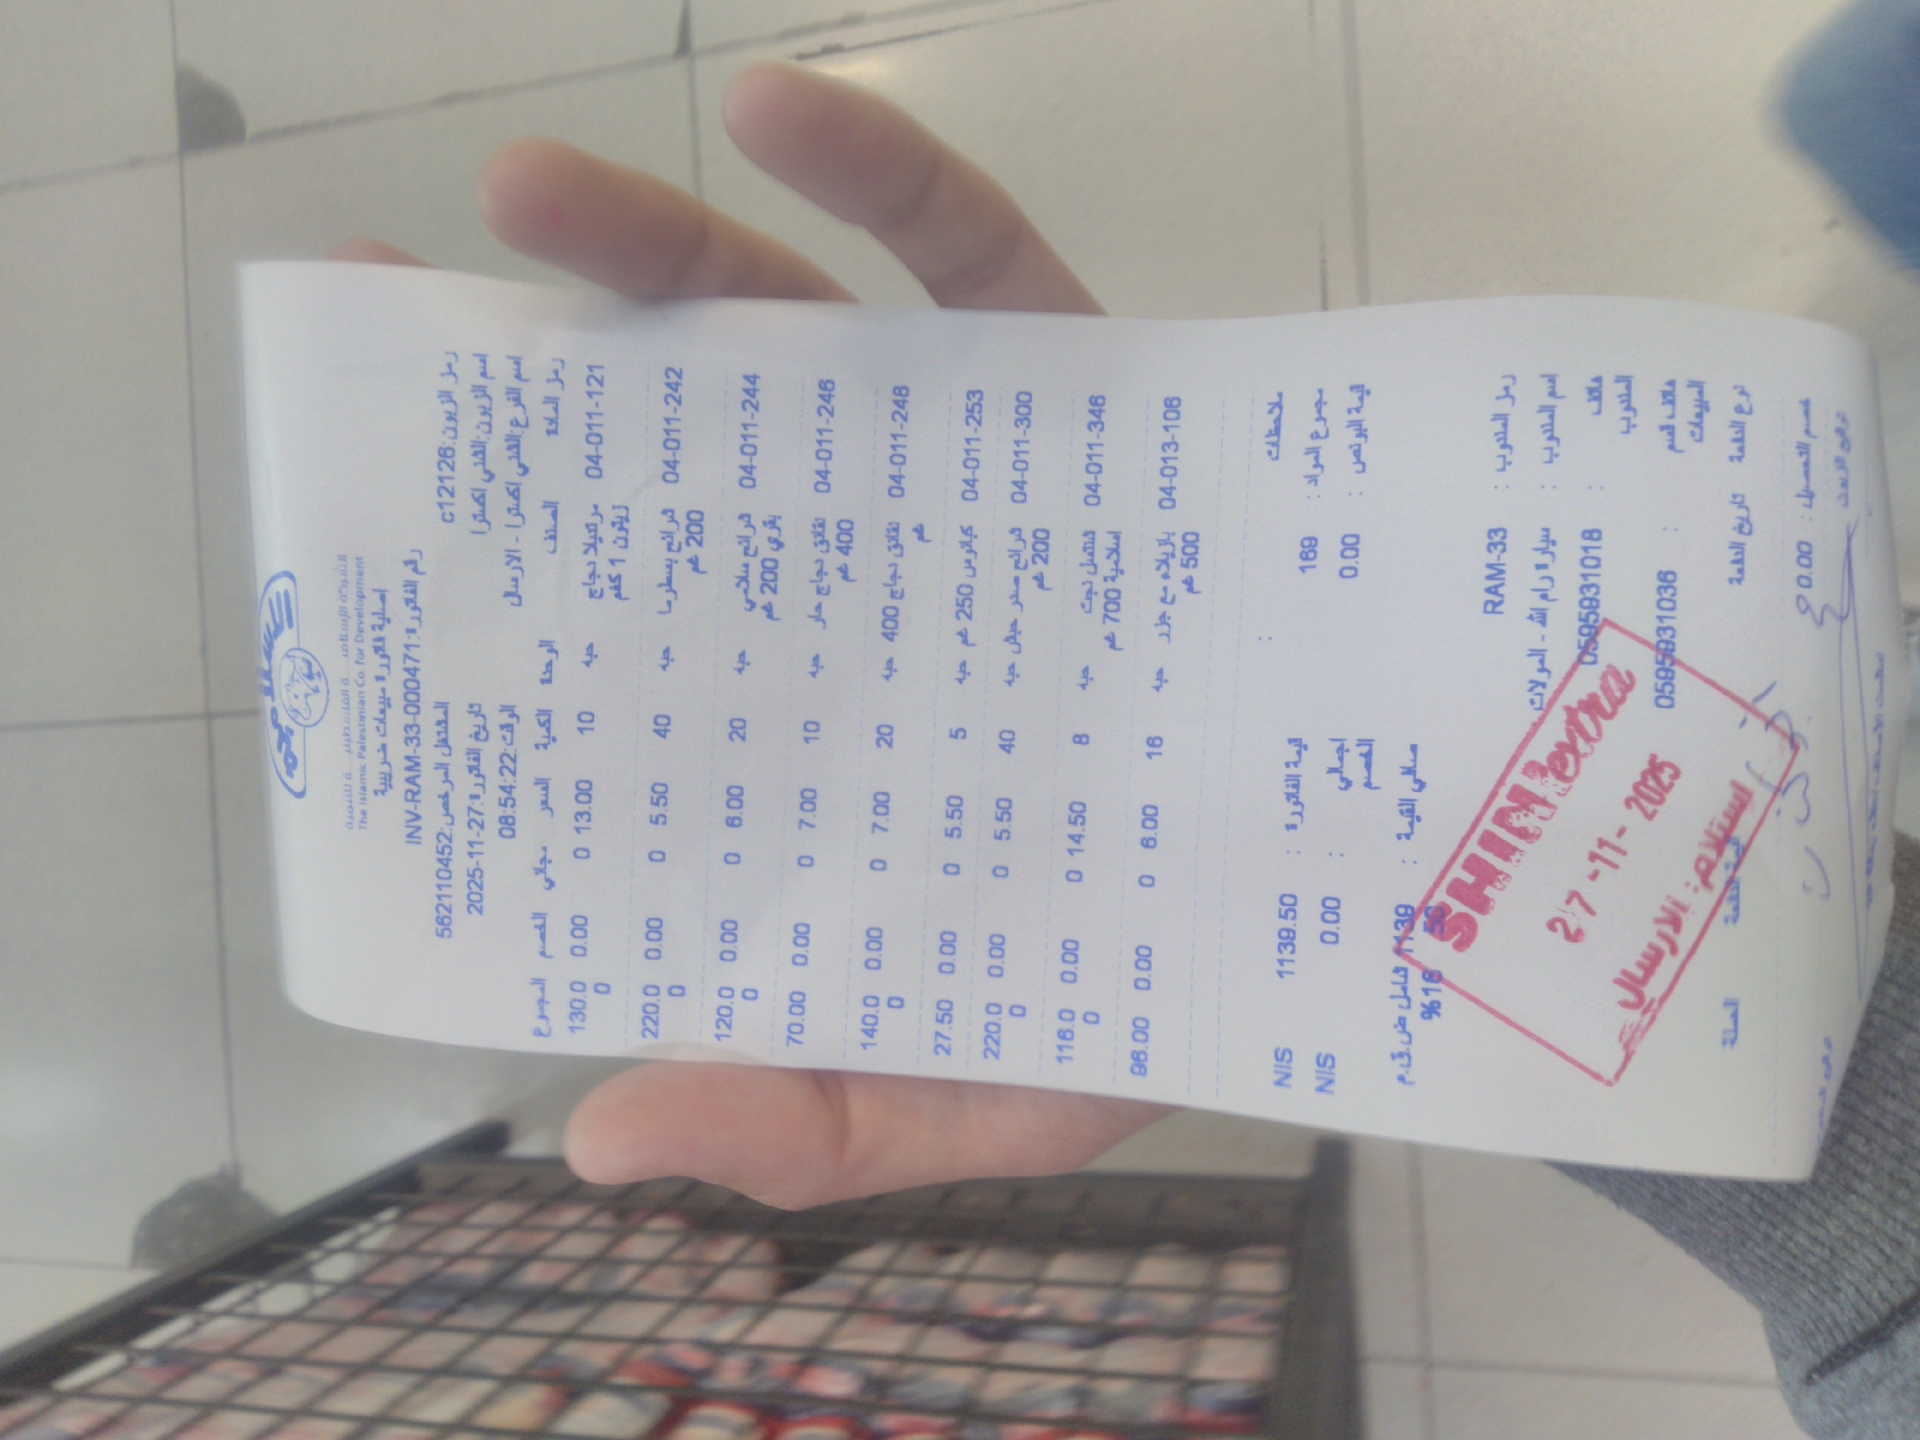 الشركة الإسلامية الفلسطينية للتنمية
The Islamic Palestinian Co. for Development
أصلية فاتورة مبيعات ضريبية
رقم الفاتورة: INV-RAM-33-000471
رمز الزبون: c12126 المشتغل المرخص: 562110452
اسم الزبون: الشني اكسترا تاريخ الفاتورة: 2025-11-27
اسم الفرع: الشني اكسترا - الارسال الوقت: 08:54:22
رمز المادة الصنف الوحدة الكمية السعر مجاني الخصم المجموع
04-011-121 مرتديلا دجاج زيتون 1 كغم حبه 10 13.00 0 0.00 130.00
04-011-242 شرائح بسطرما 200 غم حبه 40 5.50 0 0.00 220.00
04-011-244 شرائح سلامي بقري 200 غم حبه 20 6.00 0 0.00 120.00
04-011-246 نقانق دجاج حار 400 غم حبه 10 7.00 0 0.00 70.00
04-011-248 نقانق دجاج 400 غم حبه 20 7.00 0 0.00 140.00
04-011-253 كبانوس 250 غم حبه 5 5.50 0 0.00 27.50
04-011-300 شرائح صدر حبش 200 غم حبه 40 5.50 0 0.00 220.00
04-011-346 نجت اسلامية 700 غم حبه 8 14.50 0 0.00 116.00
04-013-106 بازيلاء مع جزر 500 غم حبه 16 6.00 0 0.00 96.00
ملاحظات :
مجموع المواد : 169 قيمة الفاتورة : 1139.50 NIS
قيمة البونص : 0.00 اجمالي الخصم : 0.00 NIS
صافي القيمة : 1139.50 شامل ض.ق.م 16%
رمز المندوب : RAM-33
اسم المندوب : سيارة رام الله - المولات
هاتف المندوب : 0595931018
هاتف قسم المبيعات : 0595931036
SHINI extra
27-11-2025
استلام : الارسال
نوع الدفعة تاريخ الدفعة قيمة الدفعة العملة
خصم التحصيل : 0.00